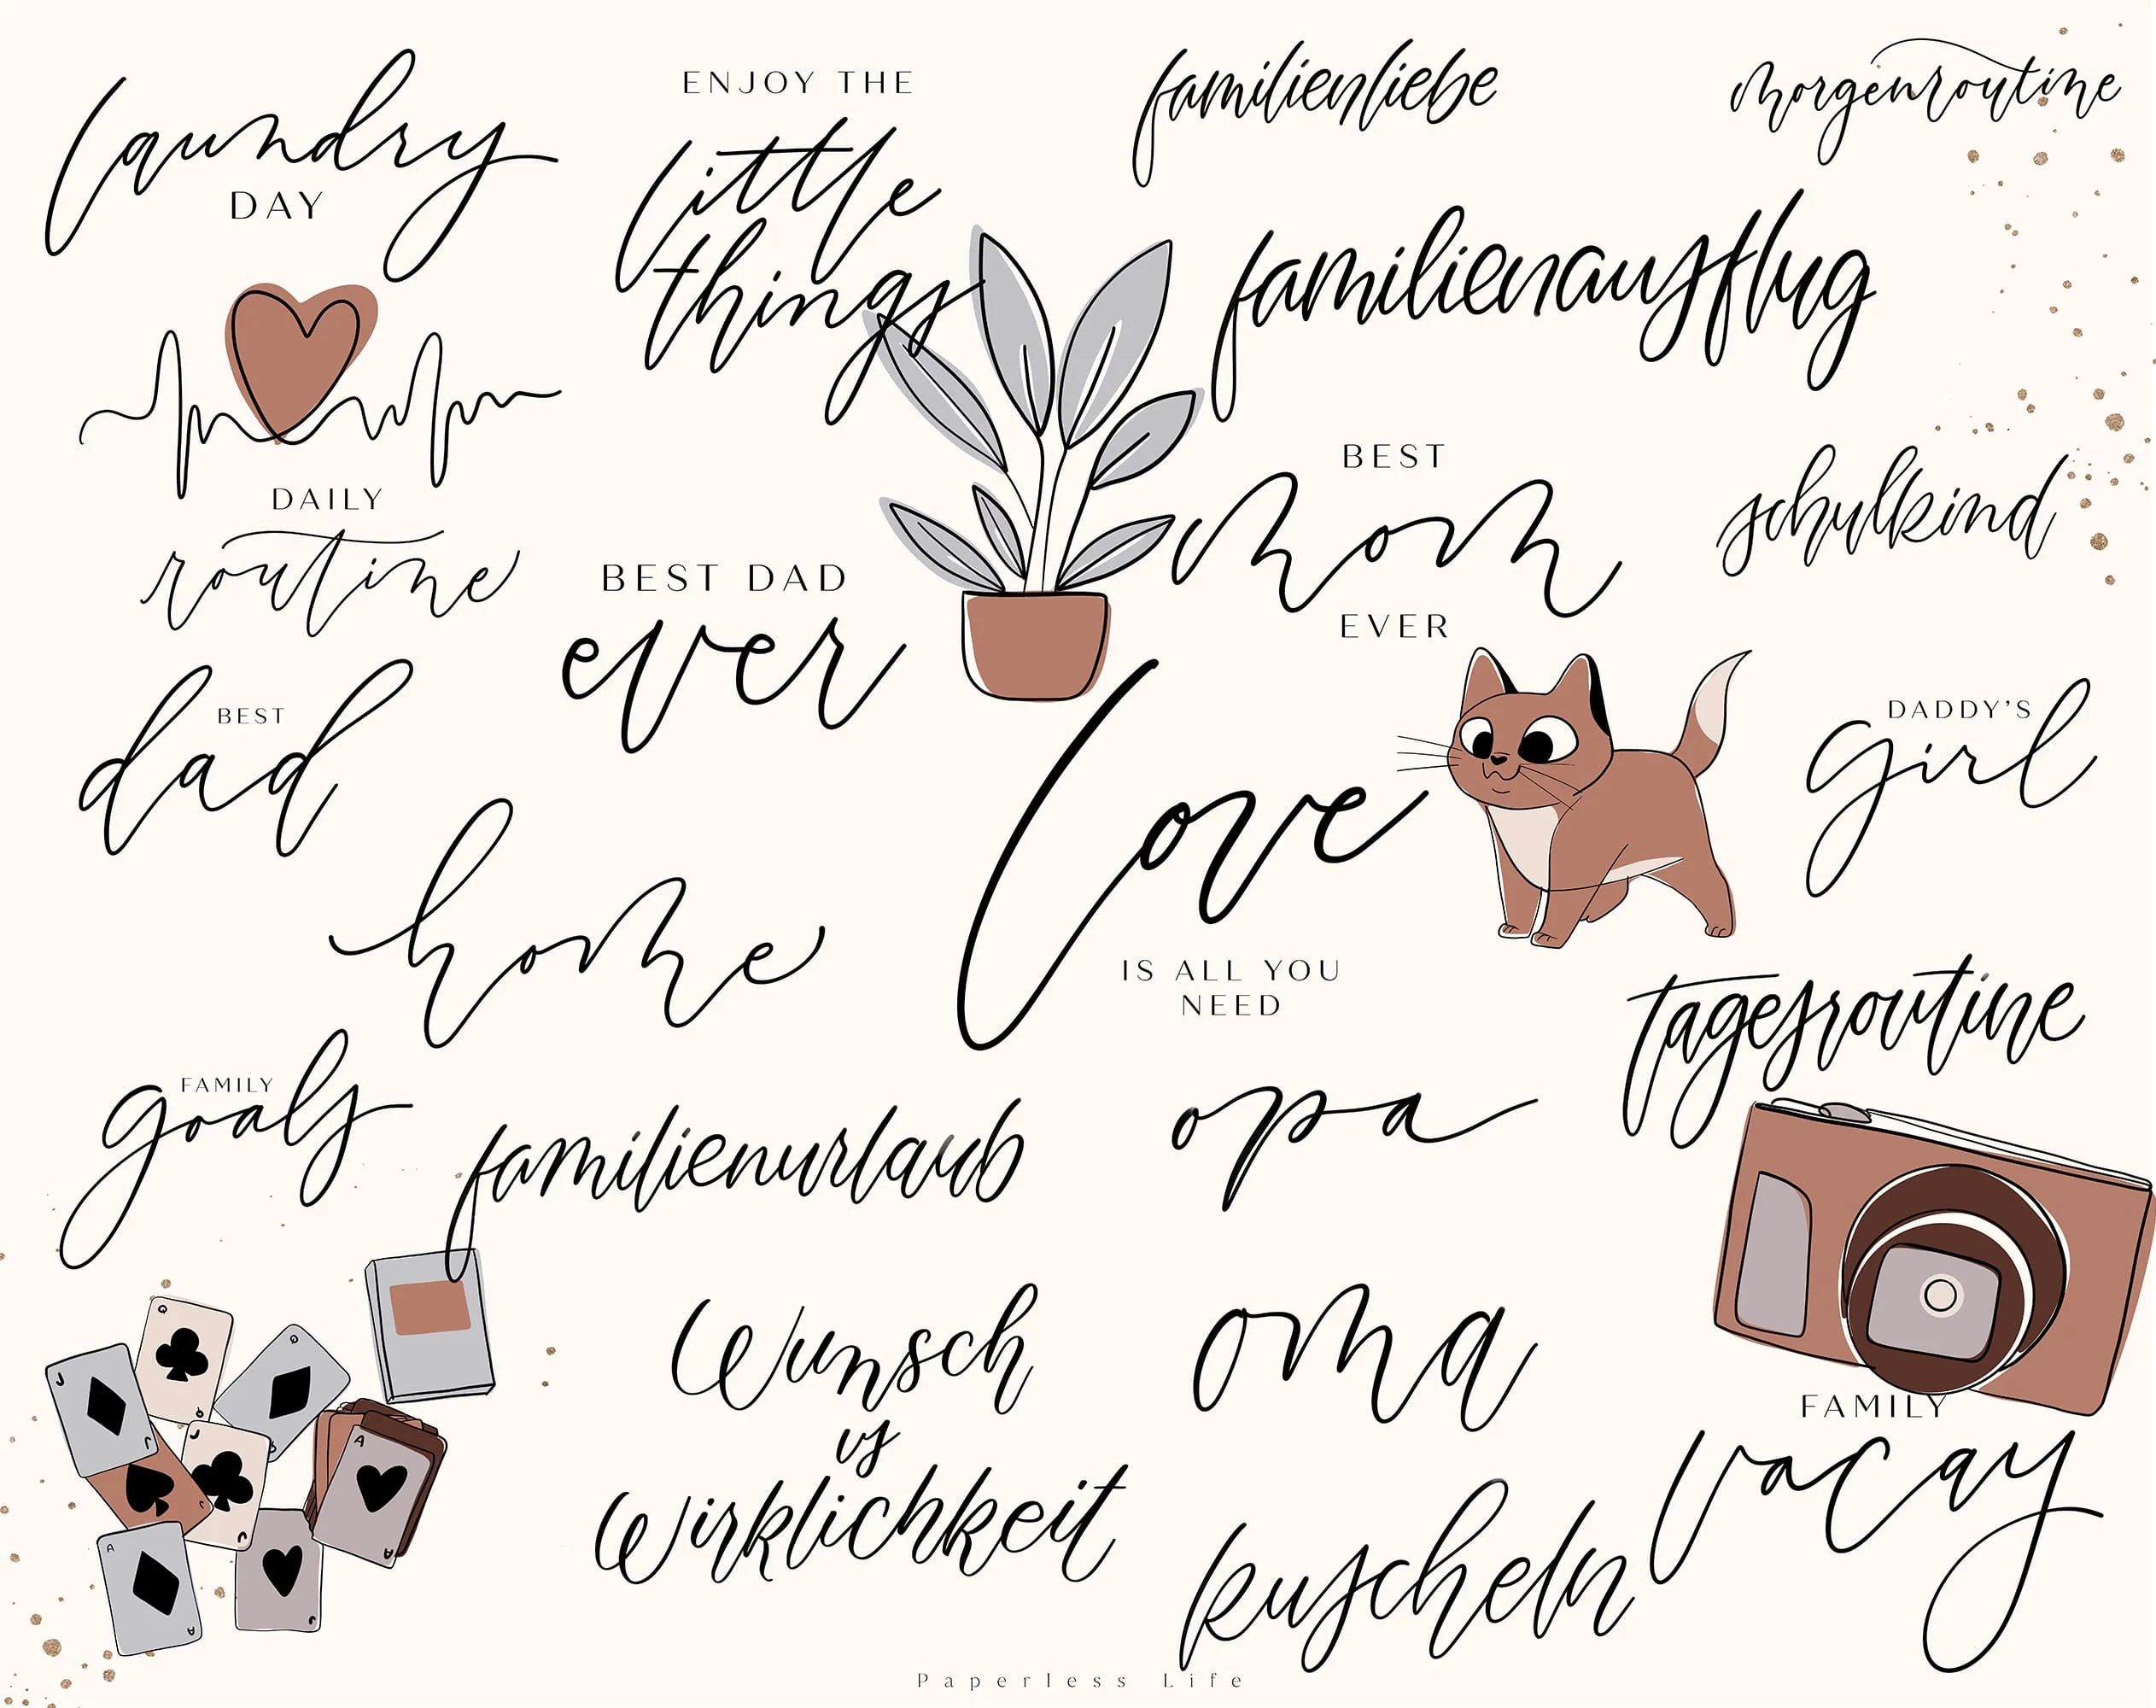 laundry
DAY
ENJOY THE
little
things
familienliebe
morgenroutine
familienausflug
DAILY
routine
BEST DAD
ever
BEST
mom
EVER
schulkind
BEST
dad
love
IS ALL YOU
NEED
DADDY'S
girl
home
tagesroutine
FAMILY
goals
familienurlaub
opa
Wunsch
vs
Wirklichkeit
oma
FAMILY
vacay
kuscheln
Q
Q
J
J
J
A
A
A
A
Paperless Life